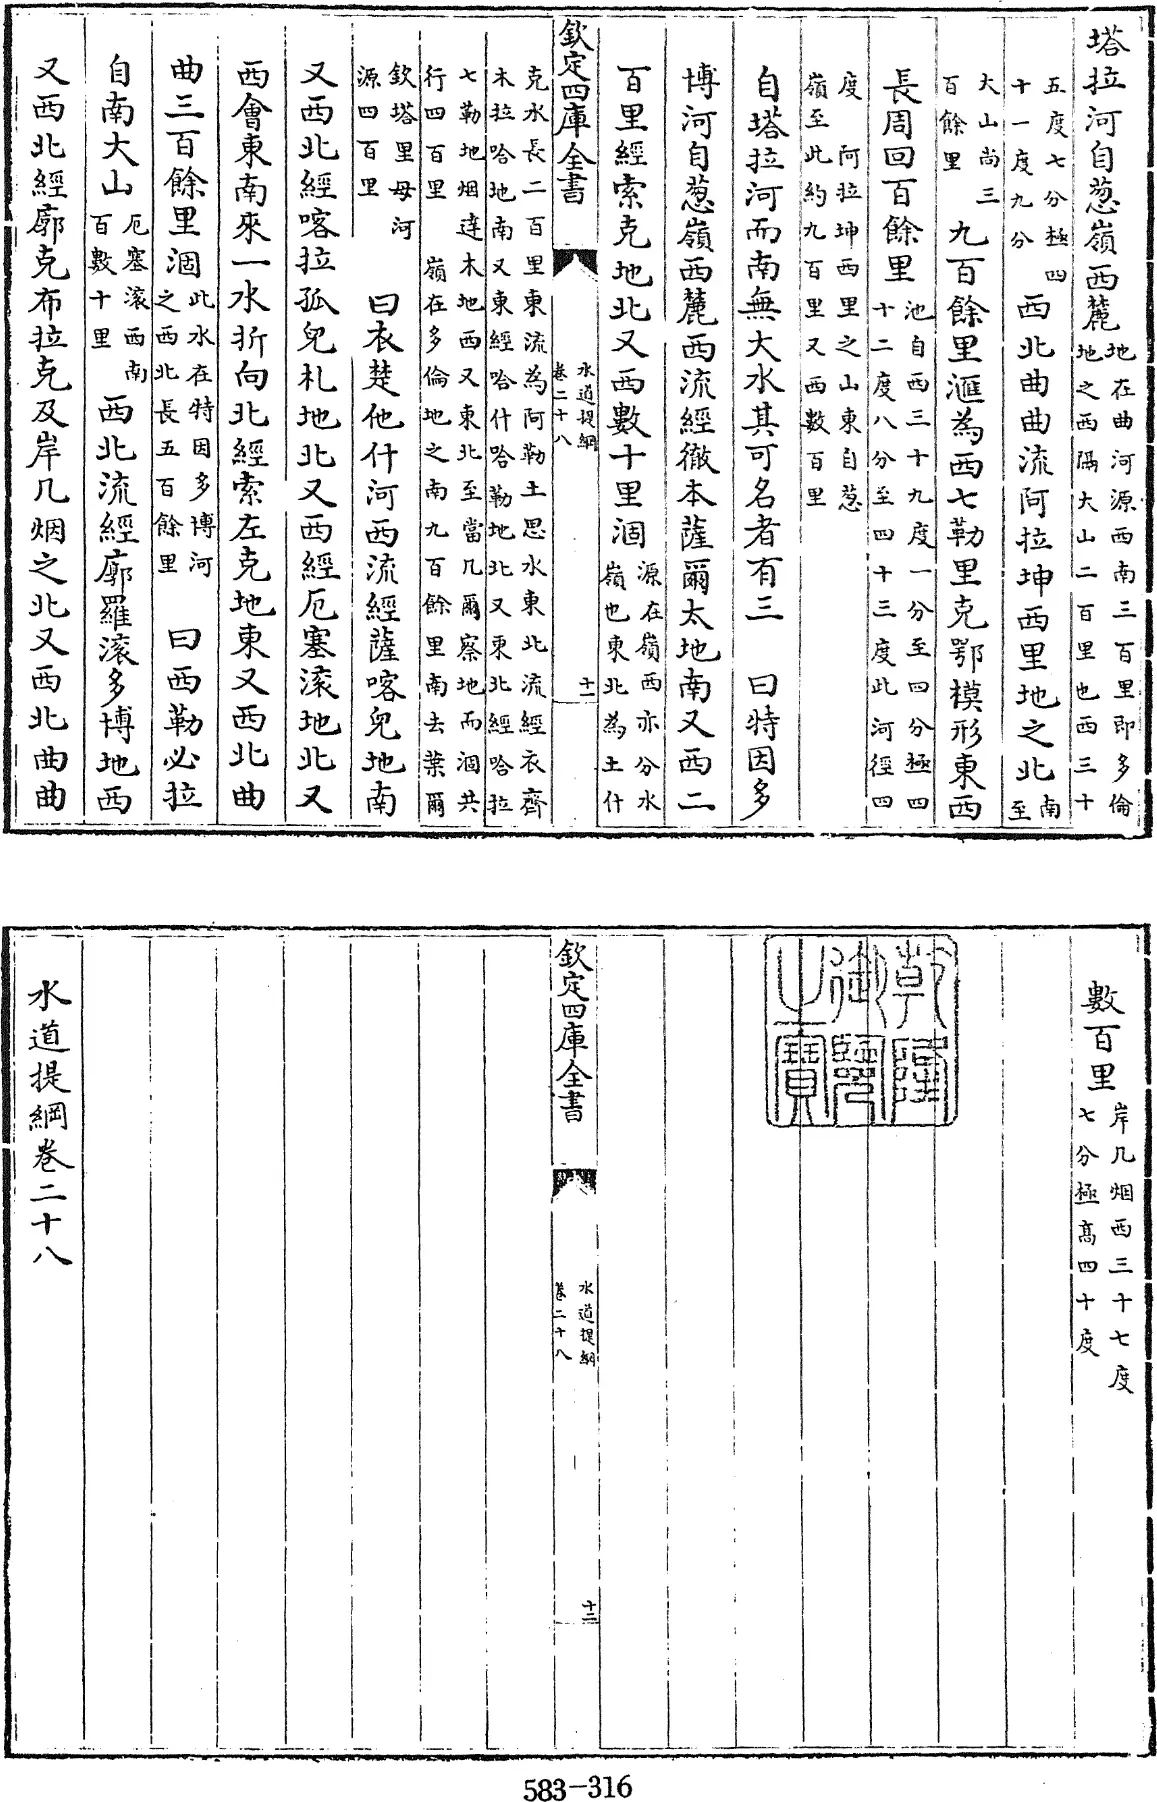 塔拉河自葱嶺西麓地在曲河源西南三百里即多倫
地之西隔大山二百里也西三十
五度七分極四
十一度九分
西北曲曲流阿拉坤西里地之北南
至
大山尚三
百餘里
九百餘里滙為西七勒里克鄂模形東西
長周回百餘里池自西三十九度一分至四分極四
十二度八分至四十三度此河徑四
度阿拉坤西里之山東自葱
嶺至此約九百里又西數百里
自塔拉河而南無大水其可名者有三 曰特因多
博河自葱嶺西麓西流經徹本薩爾太地南又西二
百里經索克地北又西數十里涸源在嶺西亦分水
嶺也東北為土什
欽定四庫全書
水道提綱
卷二十八
十一
克水長二百里東流為阿勒土思水東北流經衣齊
木拉哈地南又東經哈什哈勒地北又東北經哈拉
七勒地烟達木地西又東北至當几爾察地而涸共
行四百里 嶺在多倫地之南九百餘里南去葉爾
欽塔里母河
源四百里
曰衣楚他什河西流經薩喀兒地南
又西北經喀拉孤兒札地北又西經厄塞滚地北又
西會東南來一水折向北經索左克地東又西北曲
曲三百餘里涸此水在特因多博河
之西北長五百餘里
曰西勒必拉
自南大山厄塞滚西南
百數十里
西北流經廓羅滚多博地西
又西北經廓克布拉克及岸几烟之北又西北曲曲
數百里岸几烟西三十七度
七分極高四十度
乾隆御覽之寶
欽定四庫全書
水道提綱
卷二十八
十二
水道提綱卷二十八
583-316